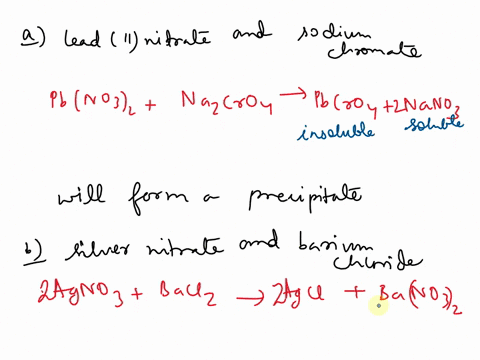 a) lead (II) nitrate and sodium chromate
Pb(NO3)2 + Na2CrO4 → PbCrO4 + 2NaNO3
insoluble soluble
will form a precipitate
b) silver nitrate and barium chloride
2AgNO3 + BaCl2 → 2AgCl + Ba(NO3)2